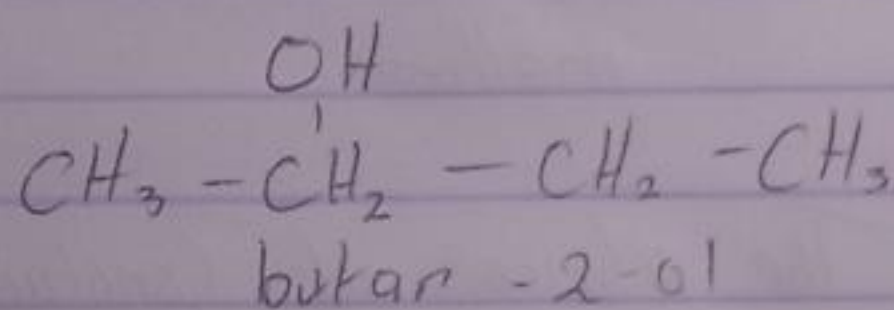 OH
CH₃ - CH₂ - CH₂ - CH₃
butan - 2 - ol